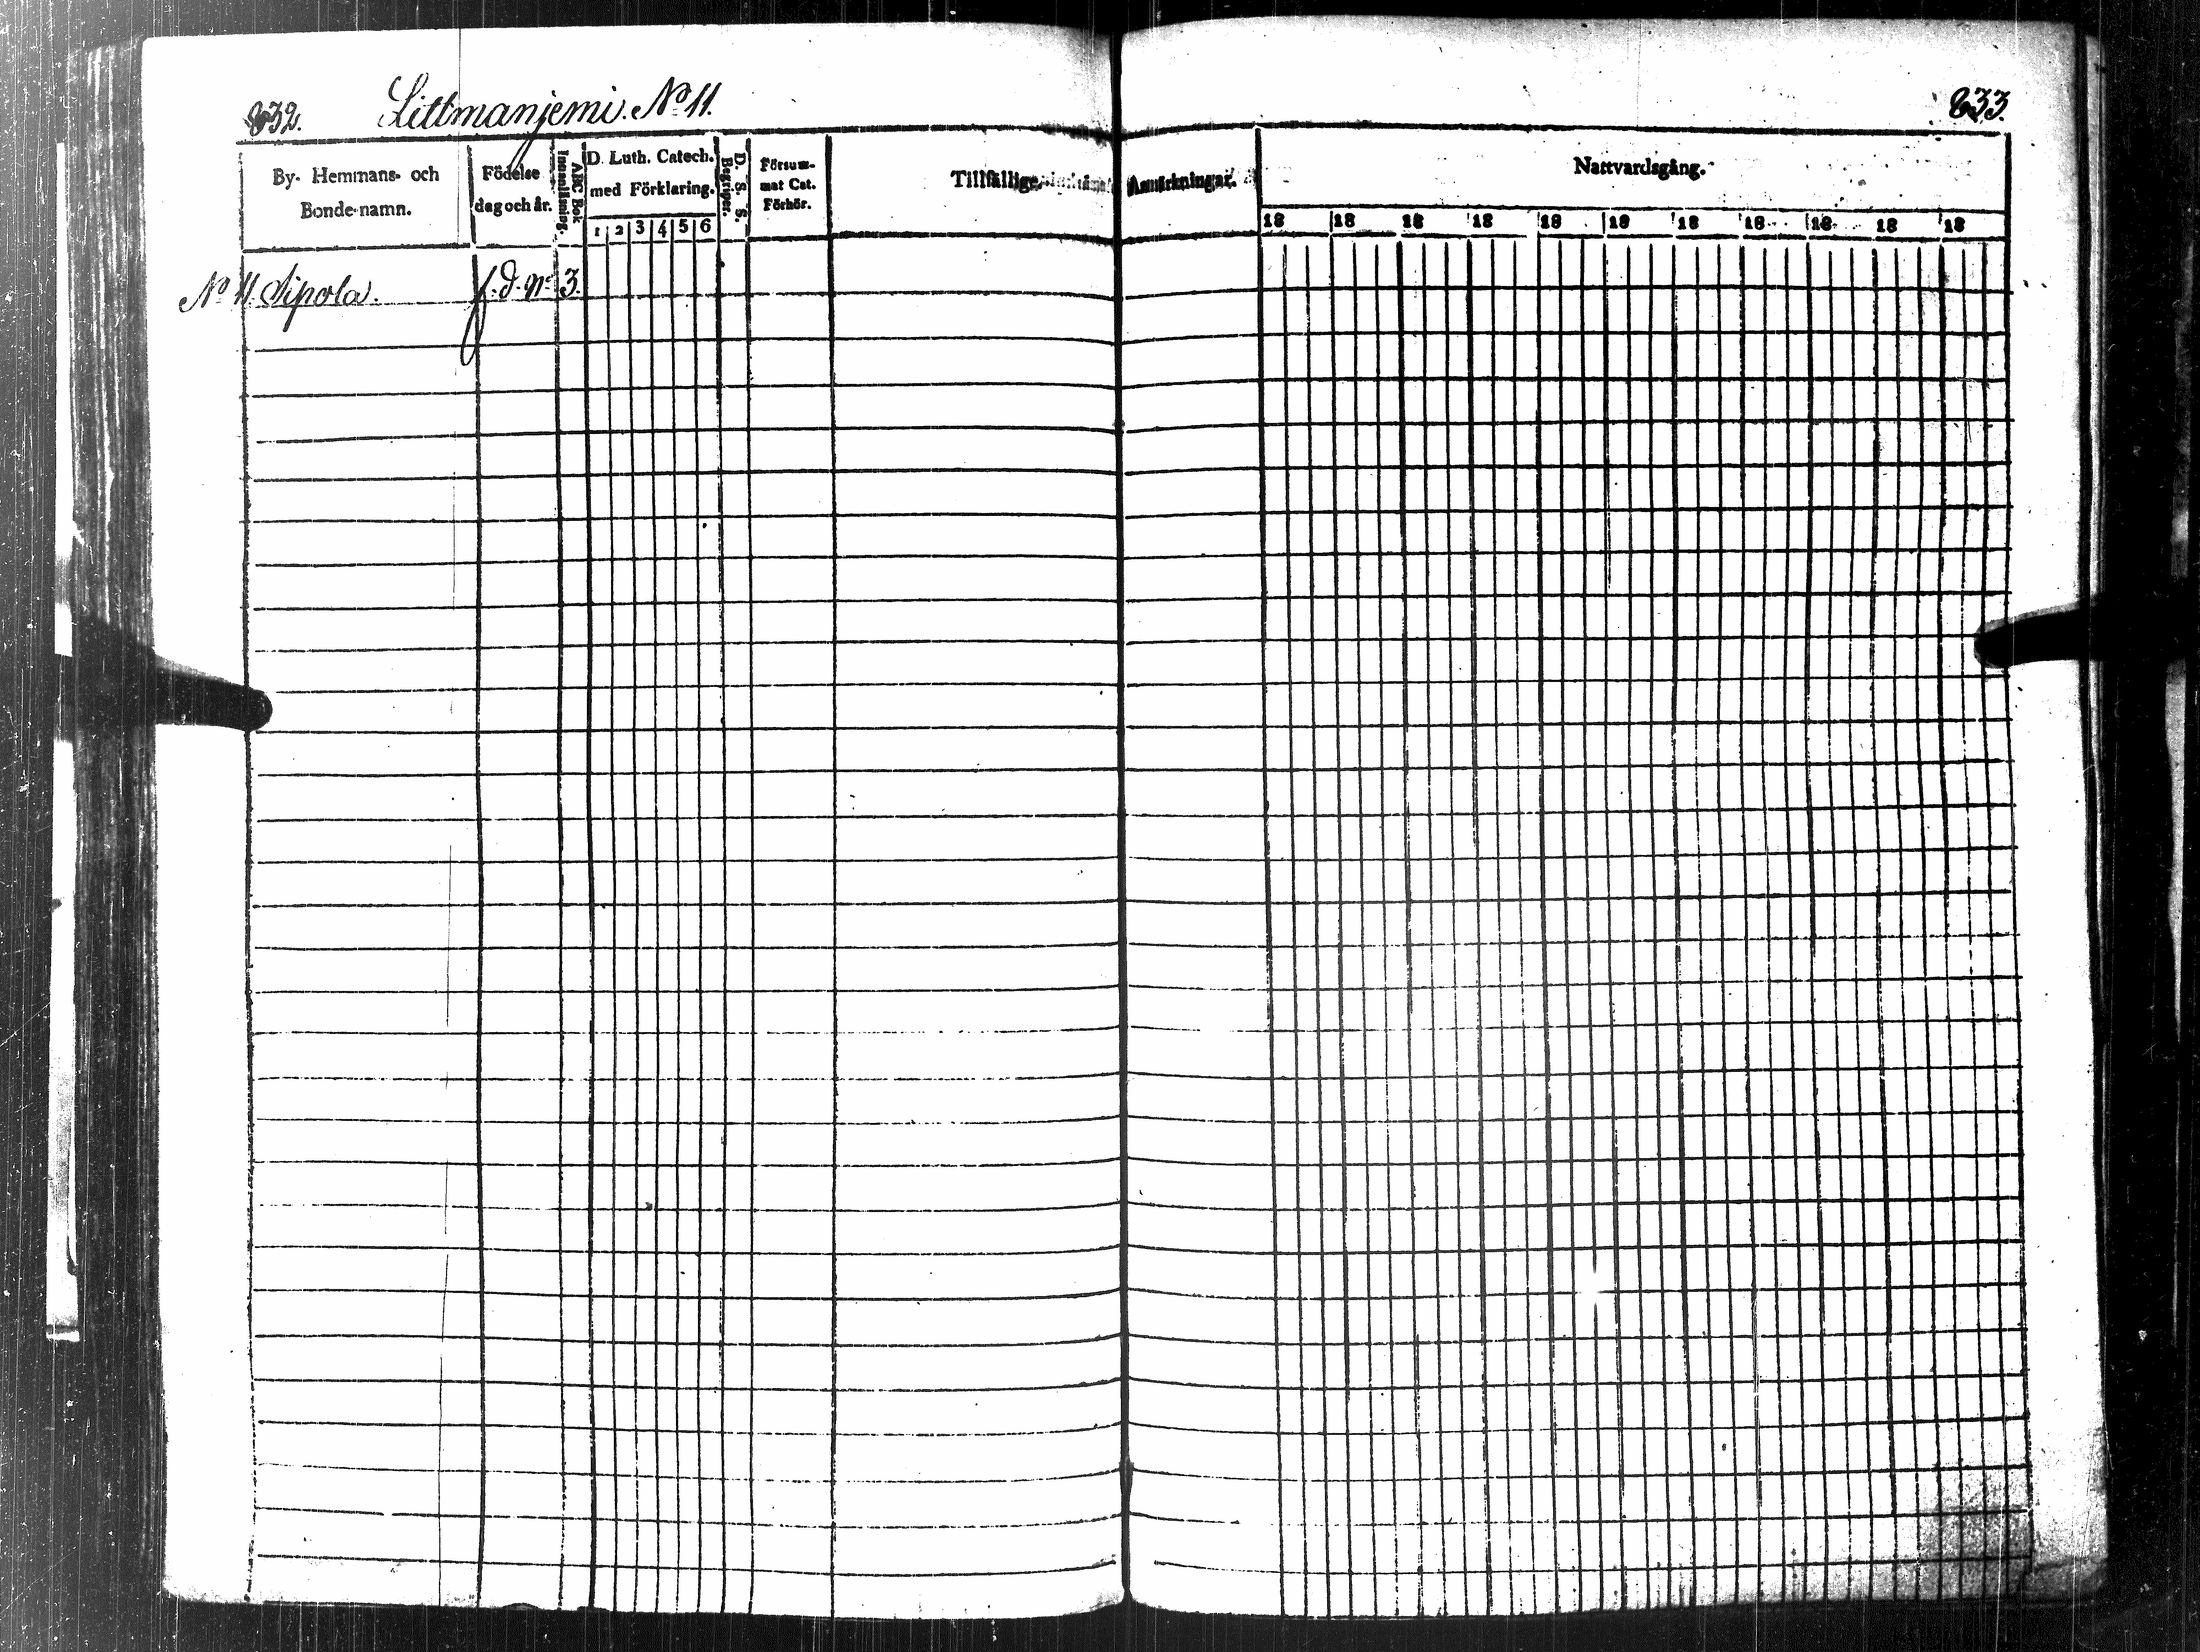 832. Littmanjemi. No 11.
833.
By- Hemmans- och Bonde-namn.
Födelse dag och år.
ABC Bok Innanläsning.
D. Luth. Catech. med Förklaring.
1 2 3 4 5 6
D. S. S. Begreper.
Försum- mat Cat. Förhör.
Tillfällige Anmärkningar.
Nattvardsgång.
18 18 18 18 18 18 18 18 18 18 18
No 11 Sipola. f. d. No 3.